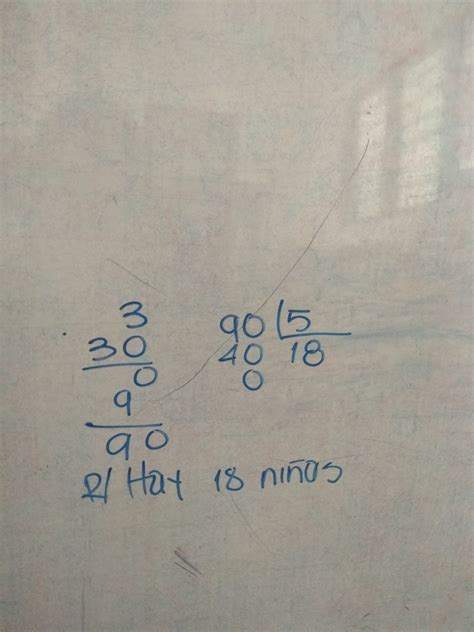 3
30
0
9
90
90 5
40 18
0
R/ Hay 18 niños